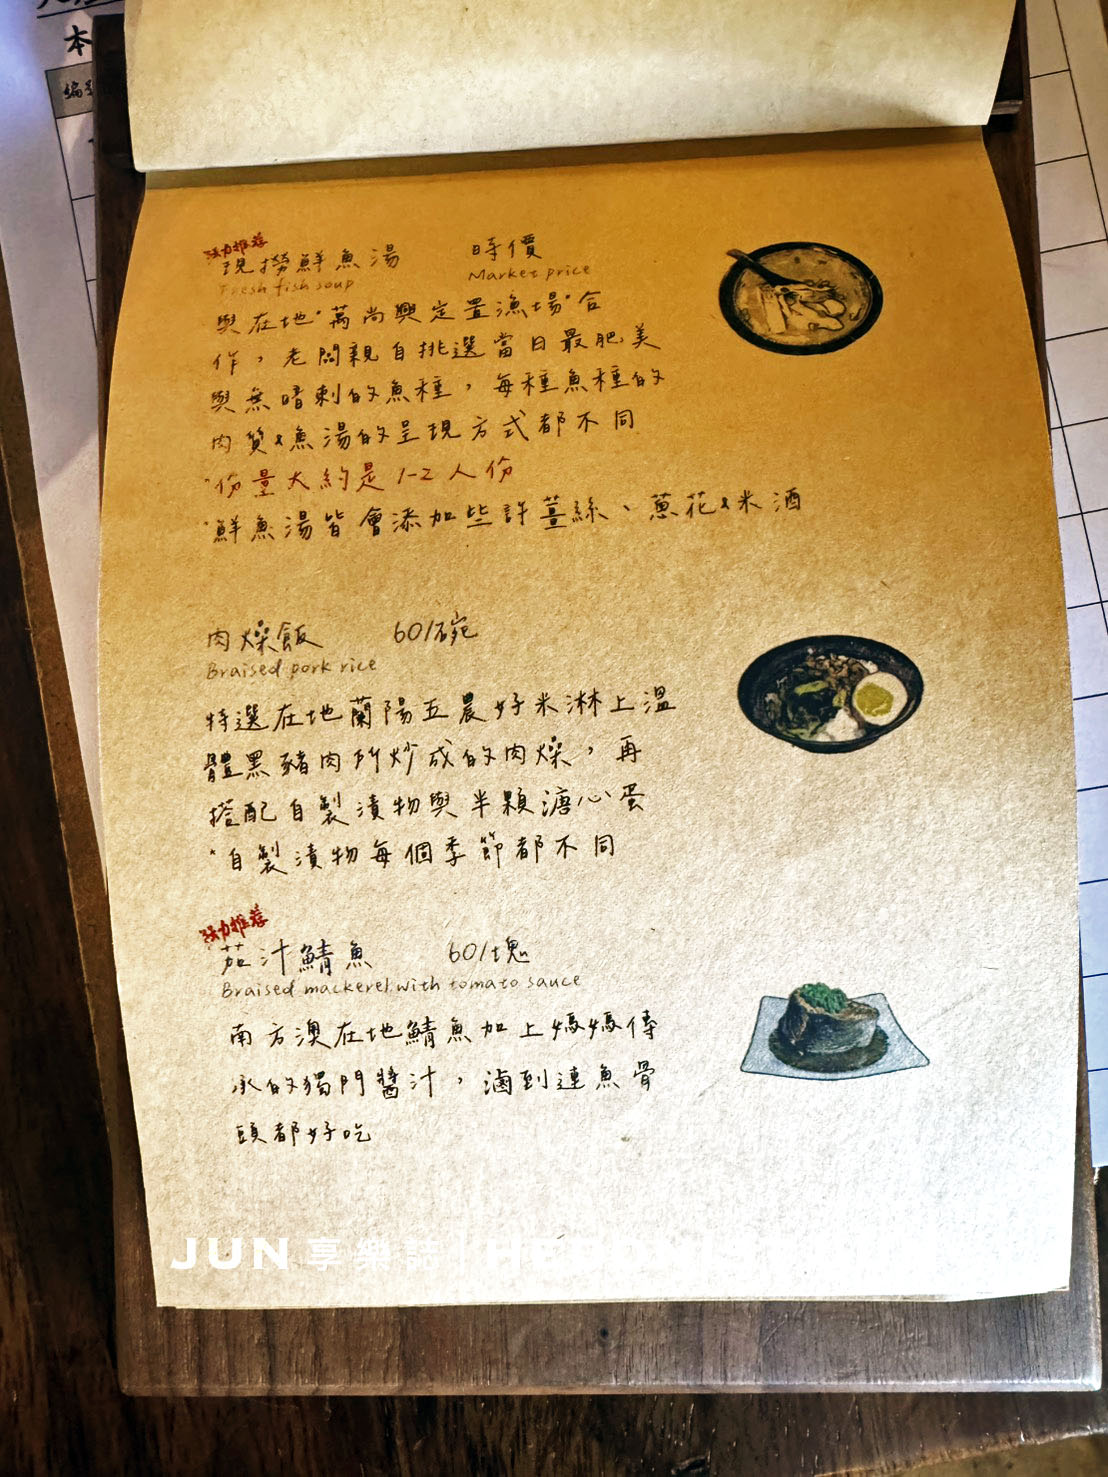 本
編號
強力推荐
現撈鮮魚湯 時價
Fresh fish soup Market price
與在地"萬尚興定置漁場"合
作，老闆親自挑選當日最肥美
與無暗刺的魚種，每種魚種的
肉質&魚湯的呈現方式都不同
*份量大約是1-2人份
*鮮魚湯皆會添加些許薑絲、蔥花&米酒
肉燥飯 60/碗
Braised pork rice
特選在地蘭陽五農好米淋上溫
體黑豬肉所炒成的肉燥，再
搭配自製漬物與半顆溏心蛋
*自製漬物每個季節都不同
強力推荐
茄汁鯖魚 60/塊
Braised mackerel with tomato sauce
南方澳在地鯖魚加上媽媽傳
承的獨門醬汁，滷到連魚骨
頭都好吃
JUN享樂誌|HEDONISM